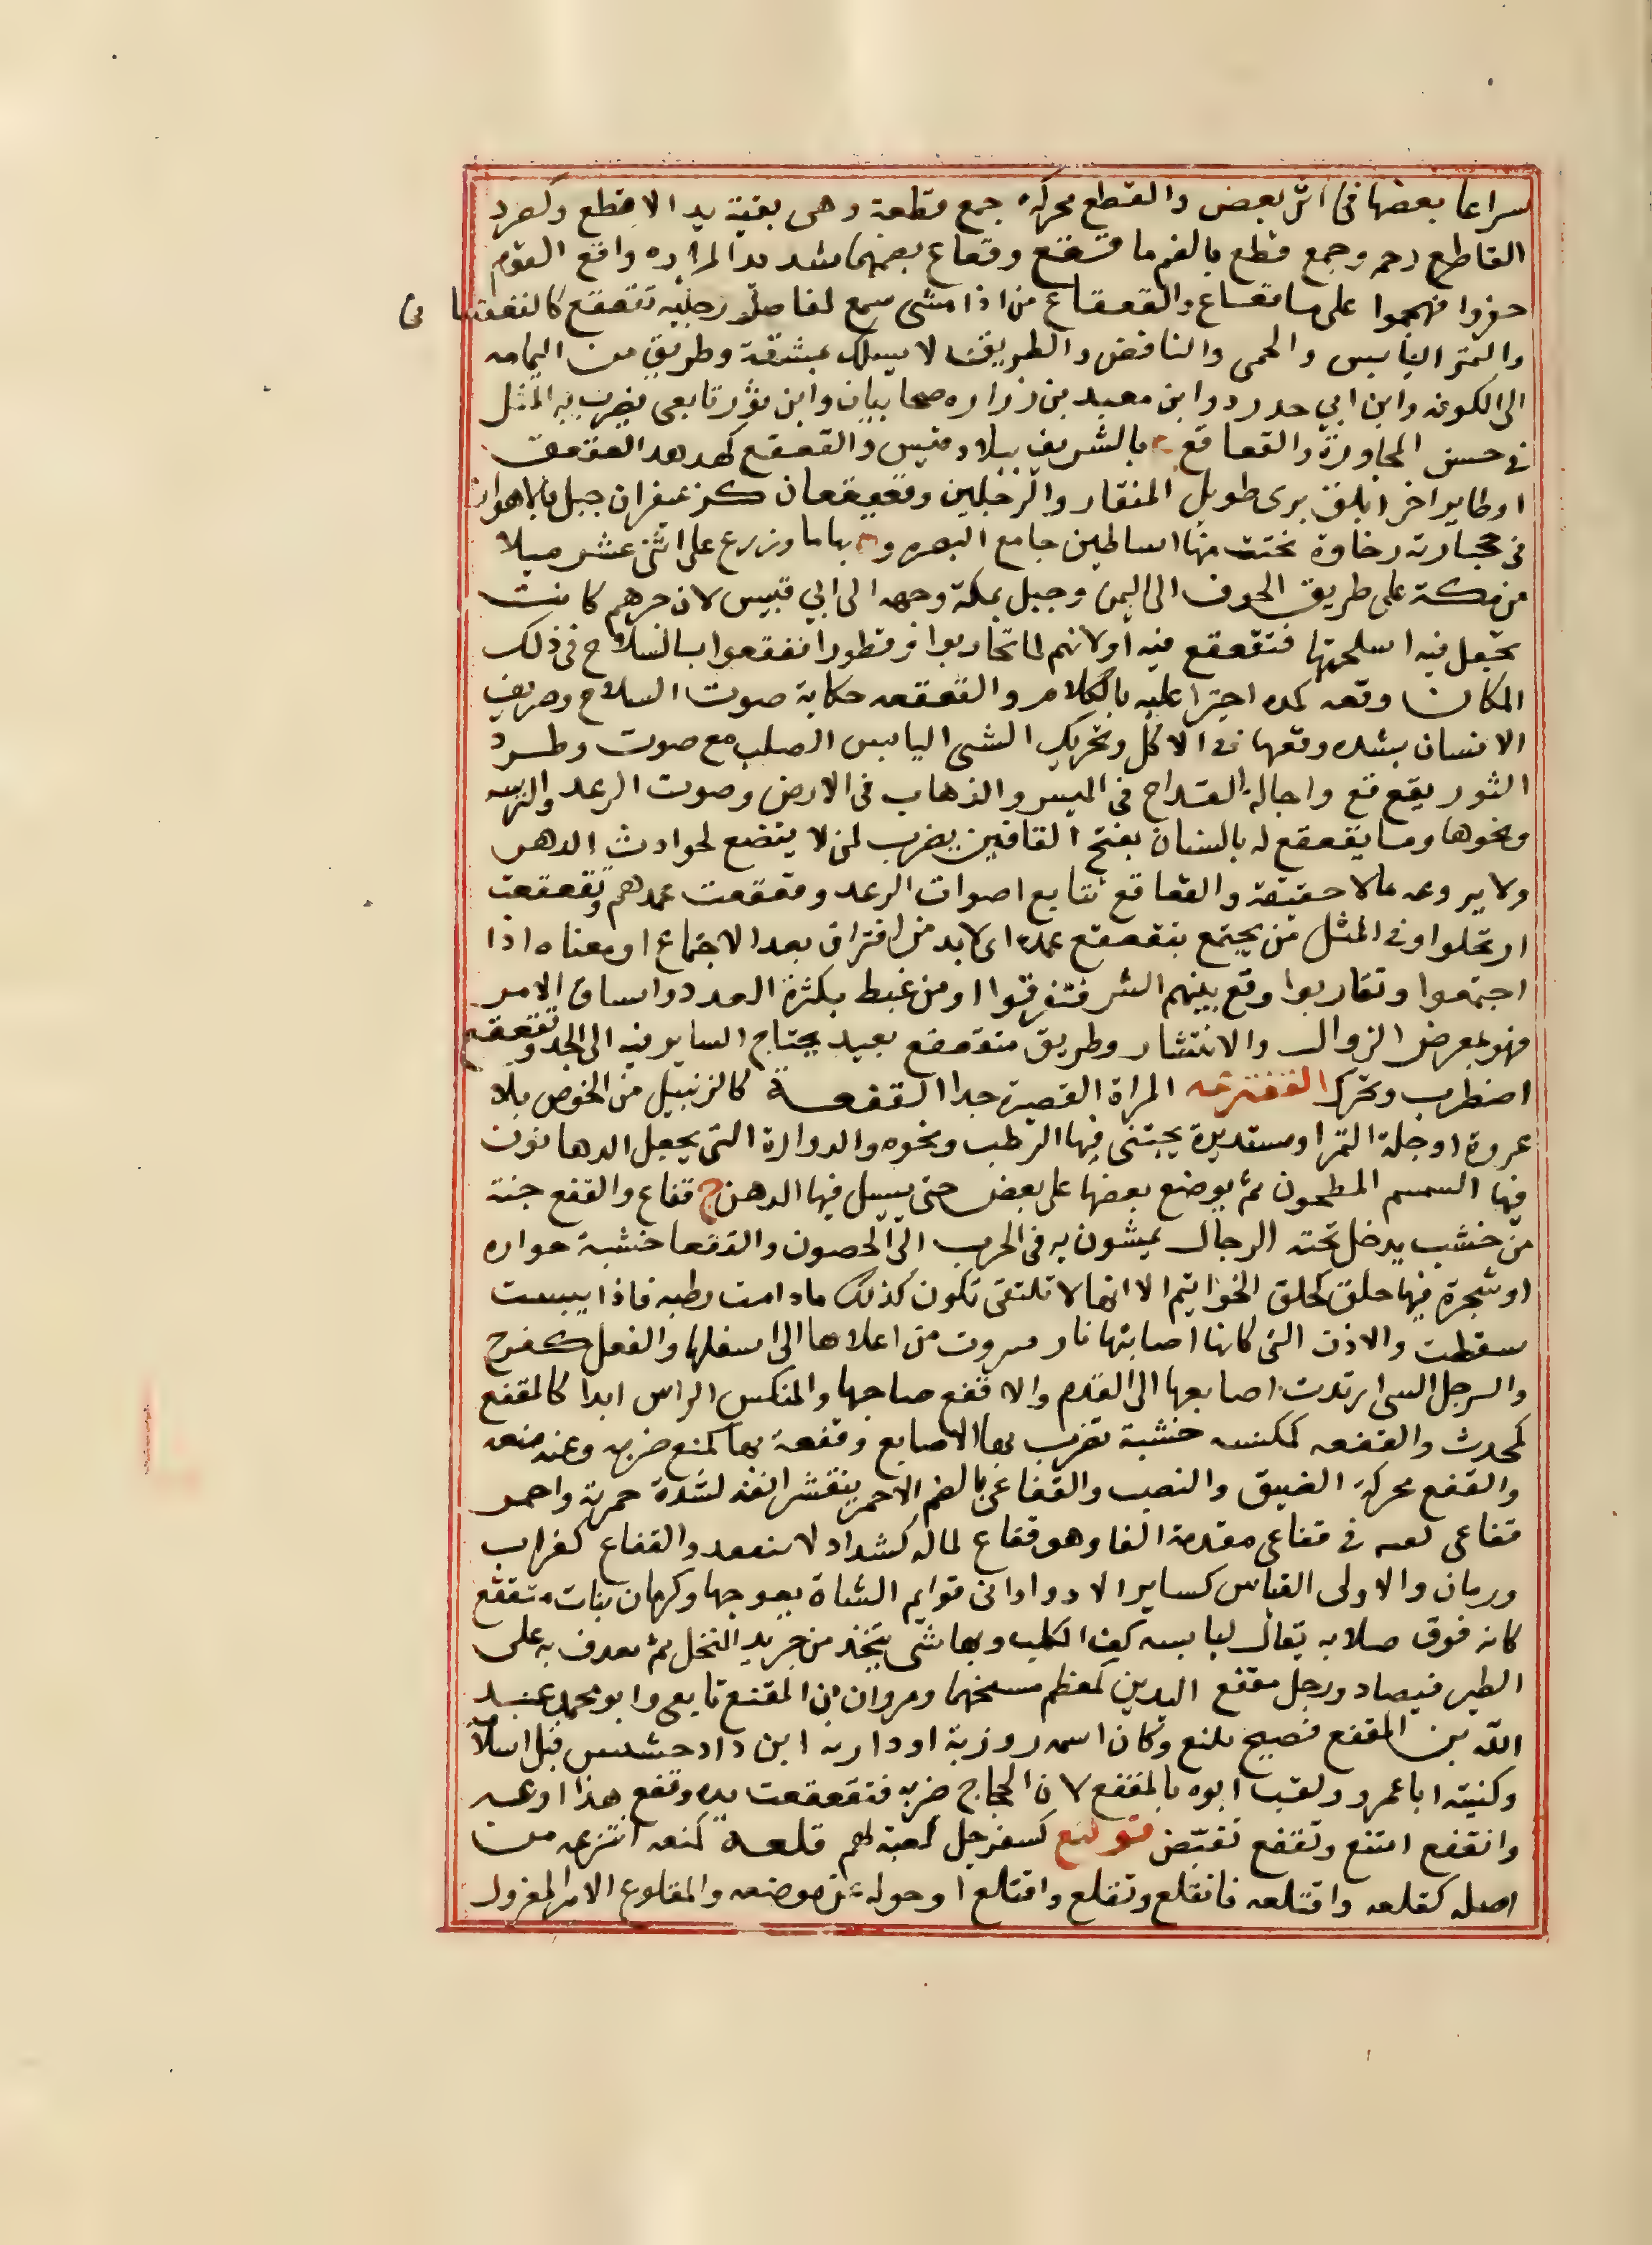 سراعا بعضها فى اثر بعض والقطع محركه جمع قطعة وهى بقية يد الاقطع وكصرد
القاطع رحمه وجمع قطع بالضم ما قعقع وقعاع بضمهما شديد المراره واقع القوم
حفروا فهجموا على ما قعاع والقعقاع من اذا مشى سمع لمفاصل رجليه تقعقع كالقعقعانى
والتمر اليابس والحمى والنافض والطريق لا يسلك بمشقة وطريق من اليمامه
الى الكوفه وابن ابي حدرد وابن معبد بن زراره صحابيان وابن ثور تابعى يضرب به المثل
في حسن المجاورة والقعاقع ع بالشريف ببلاد قيس والقعقع كهدهد العقعق
او طاير اخر ابلق برى طويل المنقار والرجلين وقعيقعان كزعيفران جبل بالاهواز
فى حجارته رخاوة نحتت منها اساطين جامع البصره وة بها ما وزرع على اثنى عشر ميلا
من مكة على طريق الحوف الى اليمن وجبل بمكة وجهه الى ابي قبيس لان جرهم كانت
تجعل فيه اسلحتها فتقعقع فيه او لانهم لما تحاربوا وقطورا تقعقعوا بالسلاح فى ذلك
المكان وقعه كمده اجترا عليه بالكلام والقعقعه حكاية صوت السلاح وصريف
الاسنان بشده وقعها فى الاكل وتحريك الشى اليابس الصلب مع صوت وطرد
الثور بقع قع واجالة القداح فى الميسر والذهاب فى الارض وصوت الرعد والترسه
ونحوها وما يقعقع له بالشنان بفتح القافين يضرب لمن لا يتضع لحوادث الدهر
ولا يروعه ما لا حقيقة والقعاقع تتابع اصوات الرعد وقعقعت عمدهم وتقعقعت
ارتحلوا وفى المثل من يجتمع يتقعقع عمده اى لا بد من افتراق بعد الاجتماع او معناه اذا
اجتمعوا وتقاربوا وقع بينهم الشر فتفرقوا او من غبط بكثرة العدد واتساق الامر
فهو بمعرض الزوال والانتشار وطريق متقعقع بعيد يحتاج الساير فيه الى الجد وتقعقع
اضطرب وتحرك القفنزعه المراة القصيرة جدا القفعة كالزنبيل من الخوص بلا
عروة او جلة التمر او مستديرة يجتنى فيها الرطب ونحوه والدوارة التى يجعل الدهانون
فيها السمسم المطحون ثم يوضع بعضها على بعض حتى يسيل فيها الدهن ج قفاع والقفع جنة
من خشب يدخل تحته الرجال يمشون به فى الحرب الى الحصون والقفعا خشبة خواره
او شجرة فيها حلق كحلق الخواتيم الا انها لا تلتقى تكون كذلك مادامت رطبه فاذا يبست
سقطت والاذن التى كانها اصابتها نار فسروت من اعلاها الى اسفلها والفعل كفرح
والرجل التى ارتدت اصابعها الى القدم والاقفع صاحبها والمنكس الراس ابدا كالمقفع
كمحدث والقفعه كمكنسه خشبة تضرب بها الاصابع وقفعة بها كمنع ضربه وعنه منعه
والقفع محركة الضيق والنصب والقفاعى بالضم الاحمر يتقشر انفه لشدة حمرته واحمر
قفاعى لغه فى فقاعى مقدمة الفا وهو قفاع لماله كشداد لا ينفقه والقفاع كغراب
ورمان والاولى القياس كساير الادوا داء فى قوايم الشاة يعوجها وكرمان نبات متقفع
كانه قرون صلابه يقال ليابسه كف الكلب وبها شى يتخذ من جريد النخل ثم يعدف به على
الطير فيصاد ورجل مقفع اليدين كمعظم متشنجهما ومروان بن المقفع تابعى وابو محمد عبد
الله بن المقفع فصيح بليغ وكان اسمه روزبة او داربه ابن دادجشنس قبل اسلامه
وكنيته ابا عمرو ولقب ابوه بالمقفع لان الحجاج ضربه فتقفعت يده وقفع هذا اوعه
وانقفع امتنع وتقفع تقبض قوقنع كسفرجل لعبة لهم قلعه كمنعه انتزعه من
اصله كقلعه واقتلعه فانقلع وتقلع واقتلع او حوله عن موضعه والمقلوع الامير المعزول